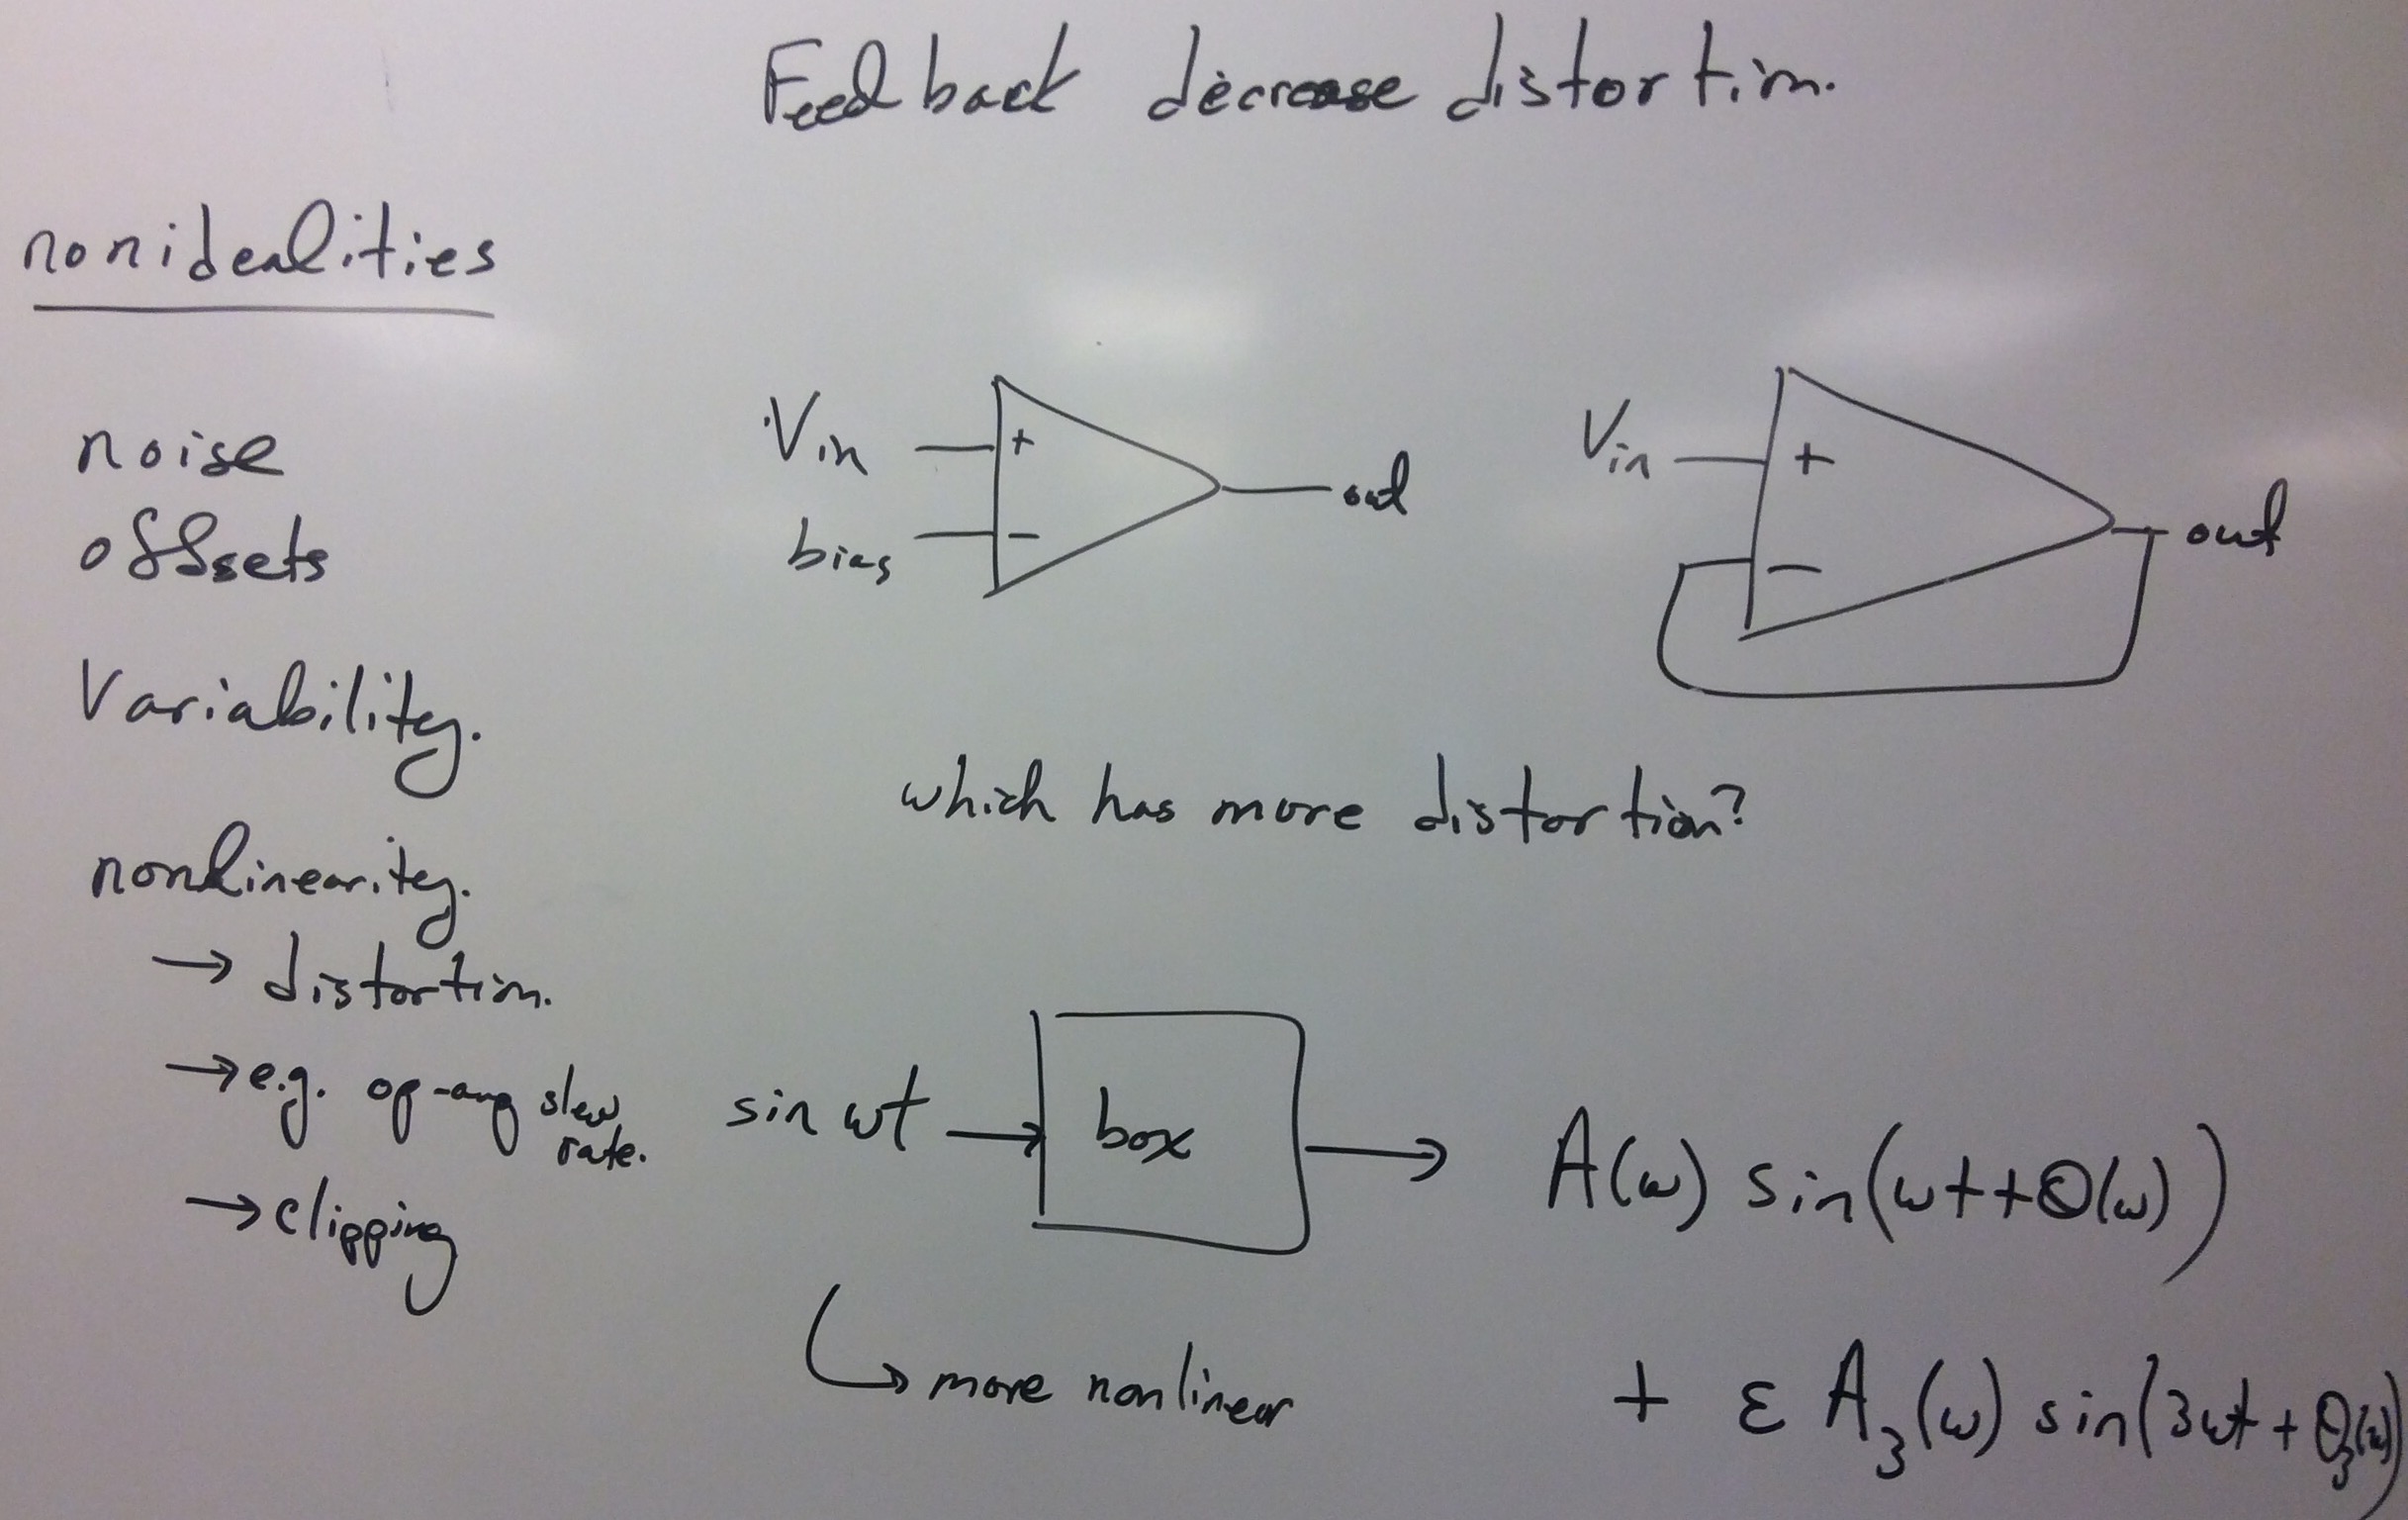 Feedback decrease distortion.
nonidealities
noise
offsets
Variability.
nonlinearity.
→ distortion.
→ e.g. op-amp slew
rate.
→ clipping
Vin + out
bias −
Vin + out
−
which has more distortion?
sin ωt → box → A(ω) sin(ωt + θ(ω))
↳ more nonlinear
+ ε A₃(ω) sin(3ωt + θ₃(ω))